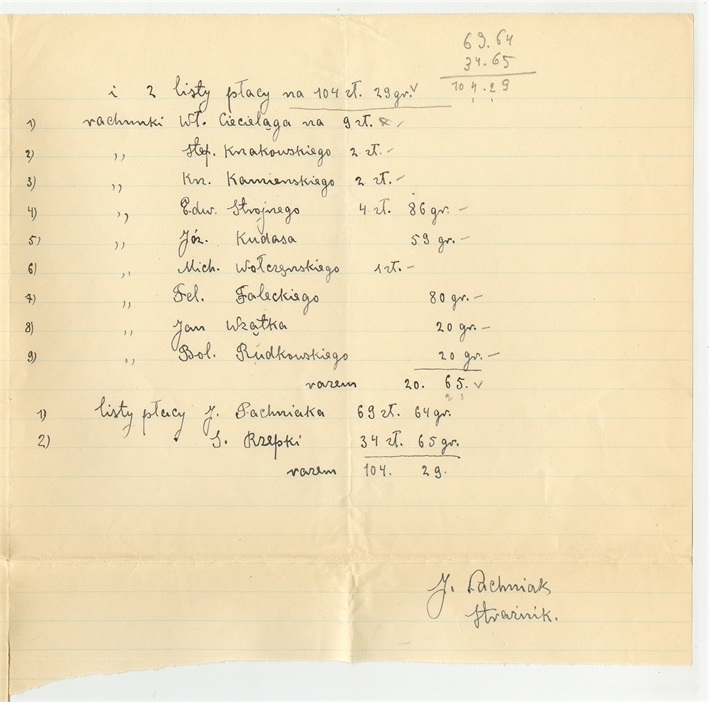 69.64
34.65
104.29
i 2 listy płacy na 104 zł. 29 gr. v
1) rachunki Wł. Ciecieląga na 9 zł. –
2) ,, Stef. Knakowskiego 2 zł. –
3) ,, Kn. Kamienskiego 2 zł. –
4) ,, Edw. Strojnego 4 zł. 86 gr. –
5) ,, Józ. Kudasa 59 gr. –
6) ,, Mich. Wołczęnskiego 1 zł. –
7) ,, Fel. Faleckiego 80 gr. –
8) ,, Jan Wzątka 20 gr. –
9) ,, Bol. Rudkowskiego 20 gr. –
razem 20. 65. v
1) listy płacy J. Pachniaka 69 zł. 64 gr.
2) S. Rzepki 34 zł. 65 gr.
razem 104. 29.
J. Pachniak
Strażnik.